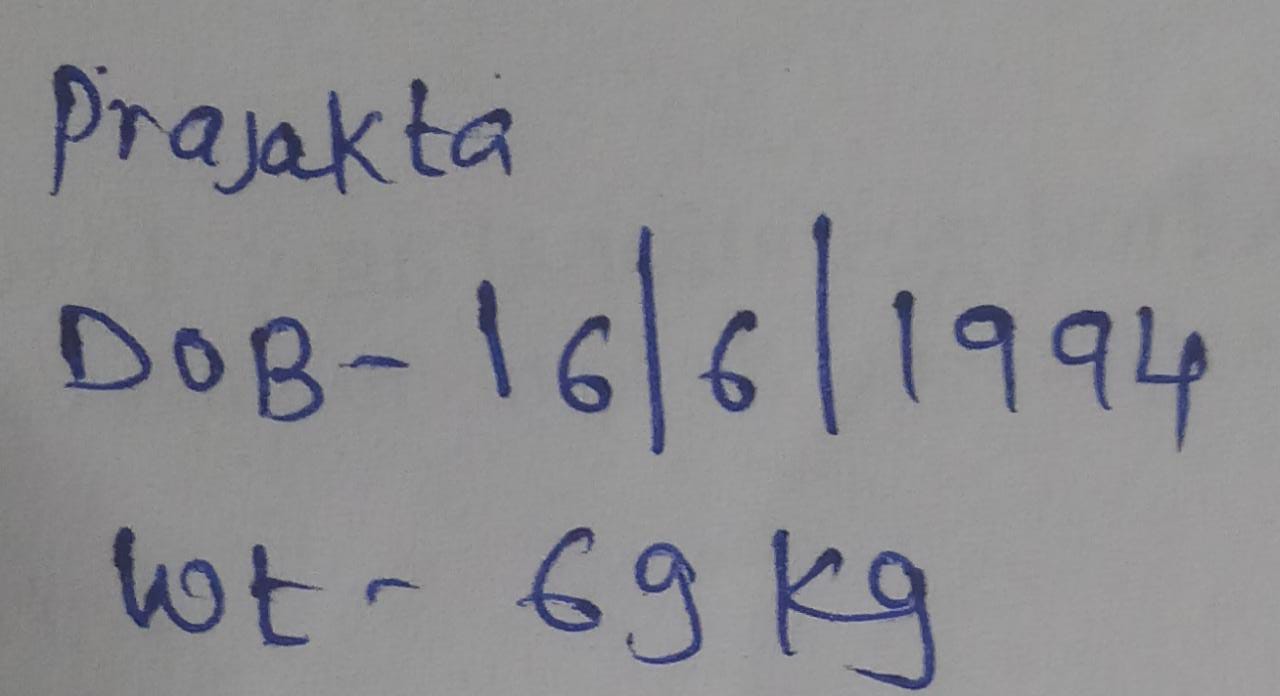 Prajakta
DOB- 16/6/1994
wt- 69 kg